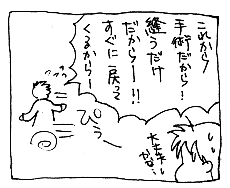 これから
手術だから!
縫うだけ
だからー!!
すぐに戻って
くるからー
ぴゅう
大丈夫
かな…